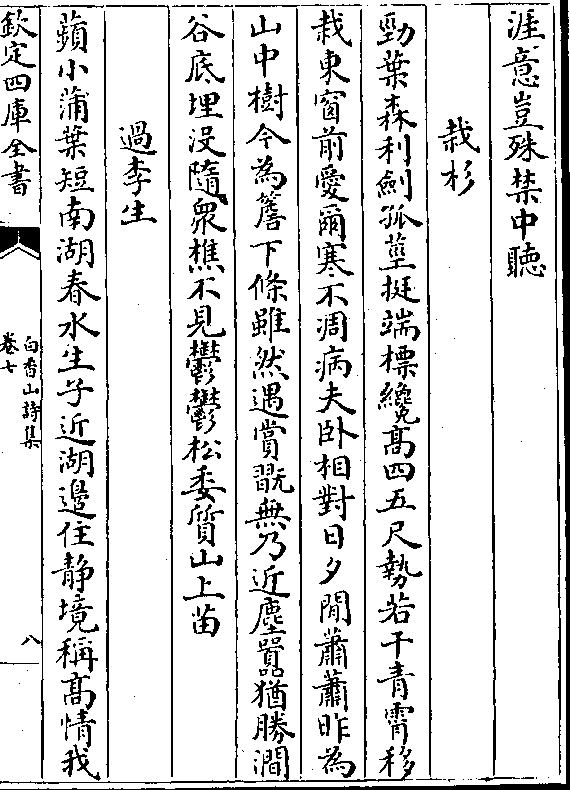 涯意豈殊禁中聽
栽杉
勁葉森利劍孤莖挺端標纔髙四五尺勢若干青霄移
栽東窗前愛爾寒不凋病夫卧相對日夕閒蕭蕭昨為
山中樹今為簷下條雖然遇賞翫無乃近塵囂猶勝澗
谷底埋没隨衆樵不見鬱鬱松委質山上苗
過李生
蘋小蒲葉短南湖春水生子近湖邊住静境稱髙情我
欽定四庫全書
白香山詩集
卷七
八